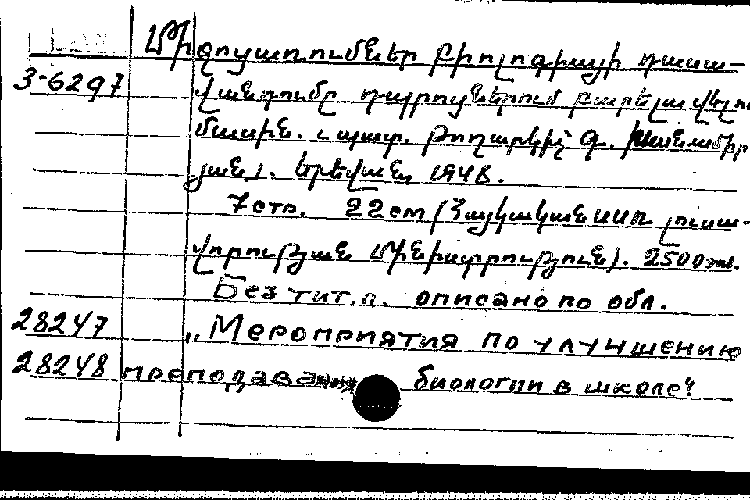 Միջոցառումներ բիոլոգիայի դասա-
3-6297 վանդումը դպրոցներում բարելավելու
մասին. պատ. թողարկիչ Գ.
յան). Երևան, 1948.
7стр. 22cm (Հայկական ՍՍՌ լուսա-
վորության Մինիստրություն). 2500
Без тит. л. описано по обл.
28247 „Мероприятия по улучшению
28248 преподавания биологии в школе“